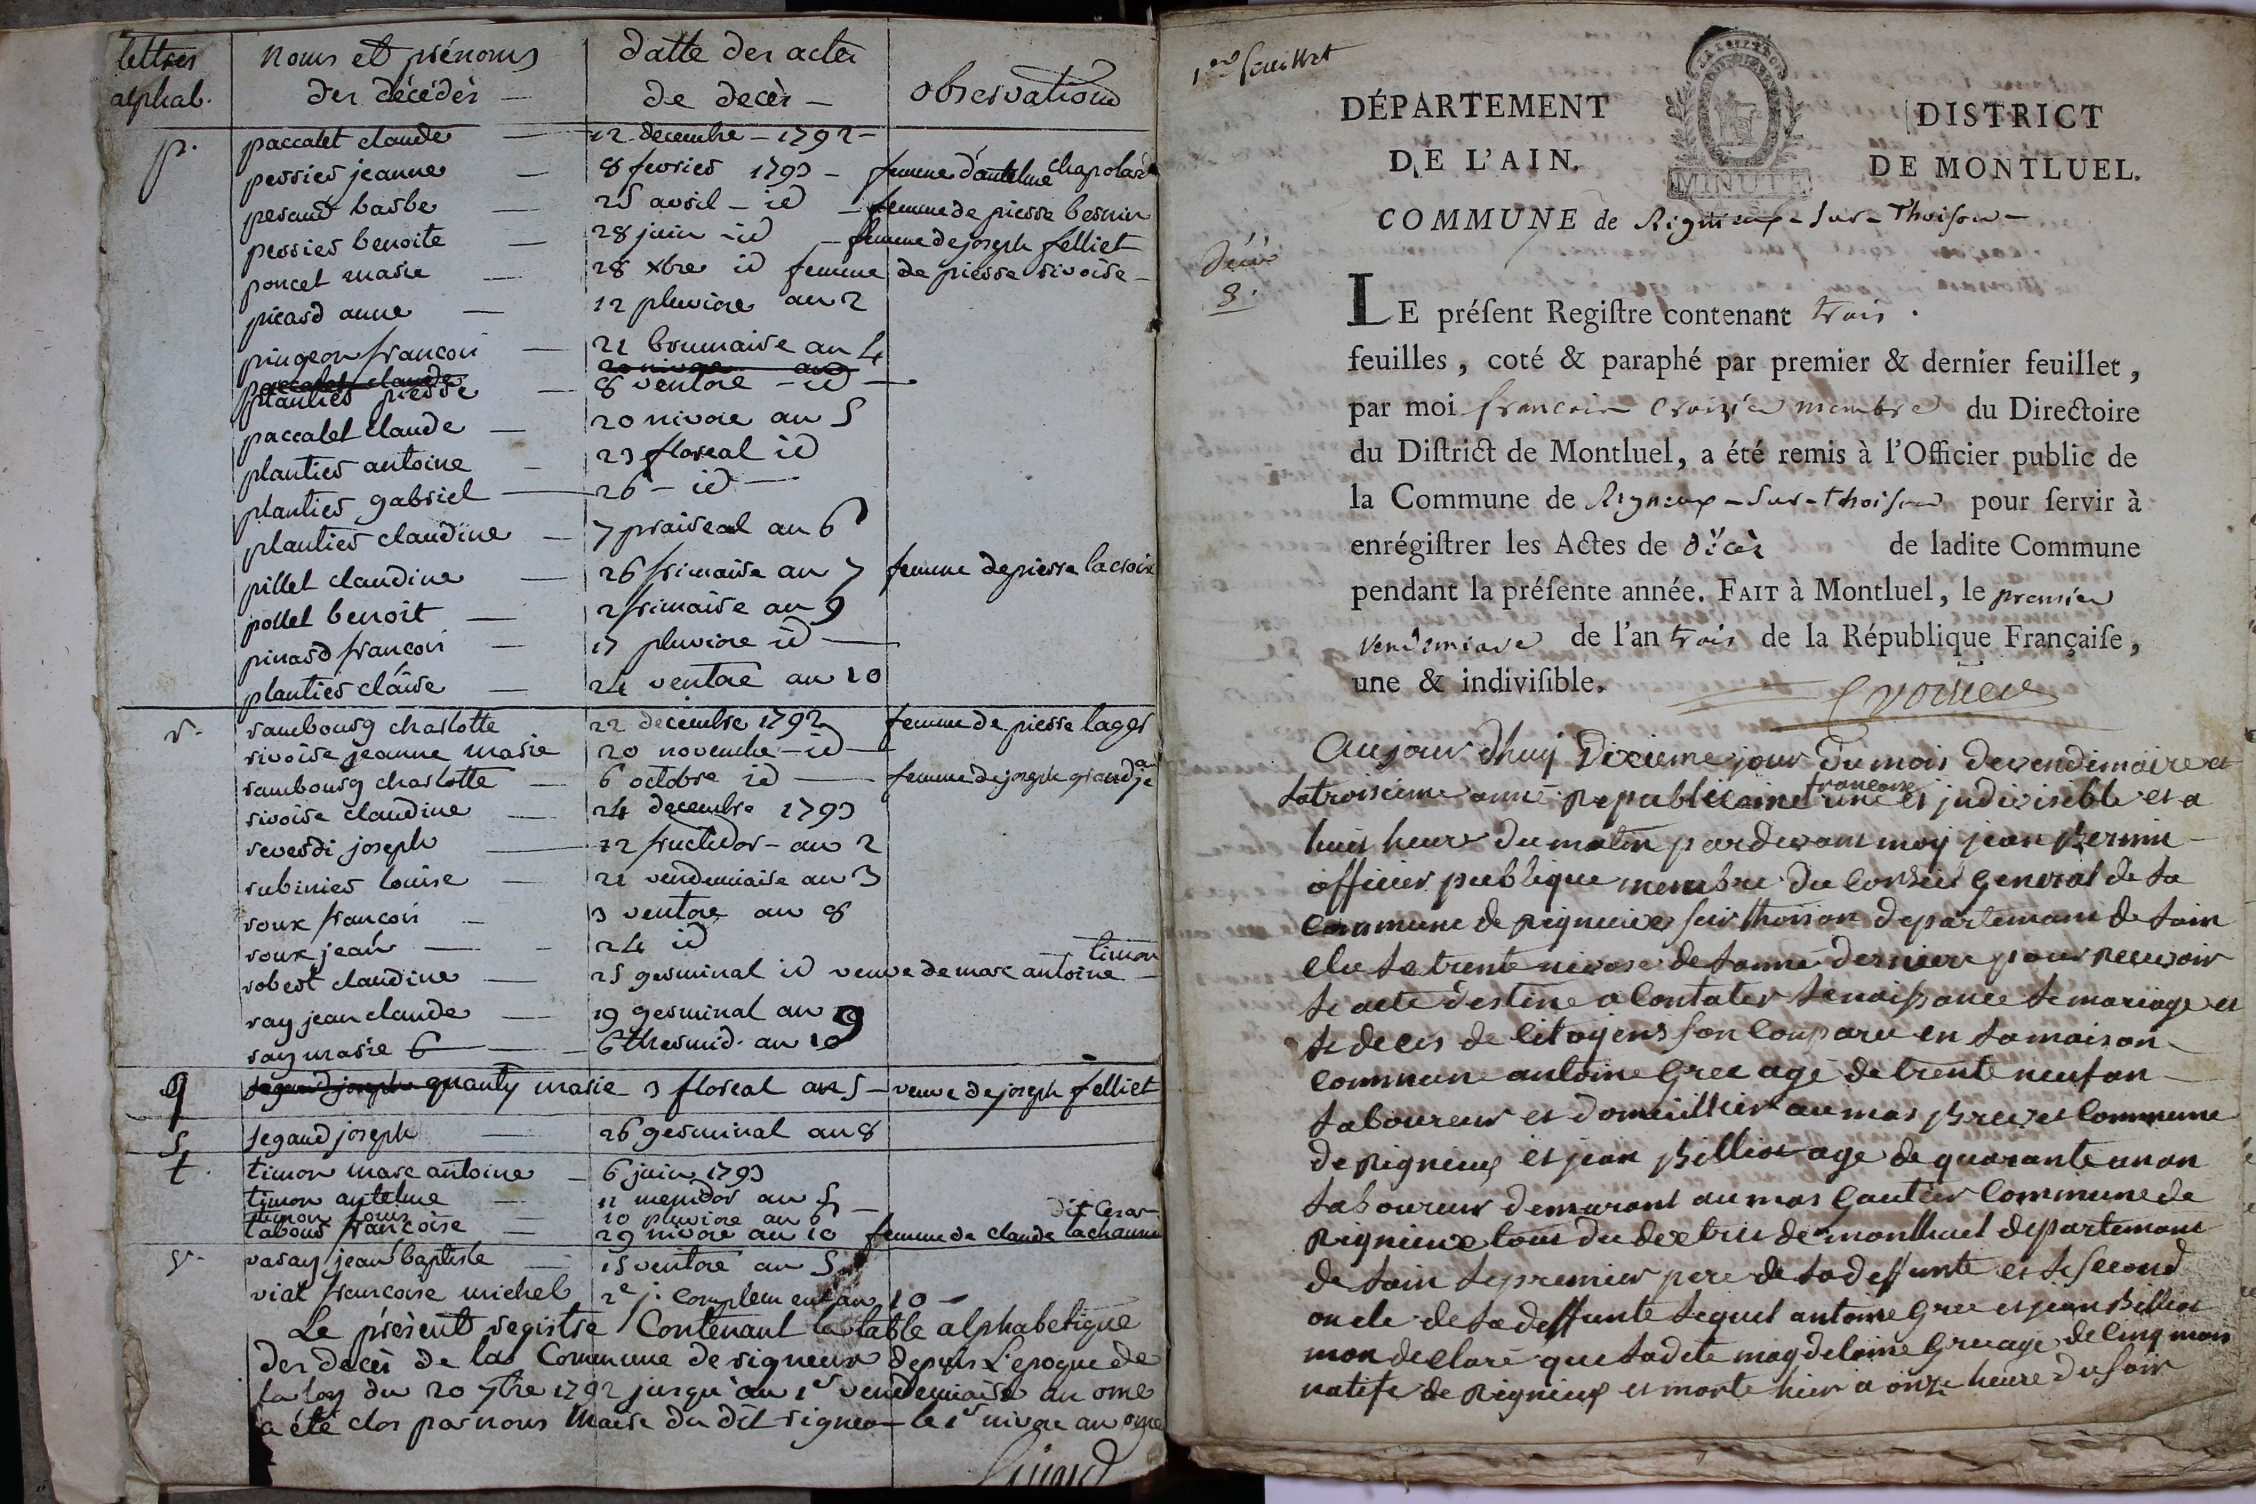 lettres
alphab.
noms et prénoms
des décédés —
datte des actes
de decès —
observations
p. paccalet claude — 12 decembre — 1792 —
perrier jeanne — 8 fevrier 1793 — femme d'antelme chapolard
peraud barbe — 25 avril — id — femme de pierre bernin
perrier benoite — 28 juin — id — femme de joseph felliet
poncet marie — 28 xbre id femme de pierre rivoire —
picard anne — 12 pluviore an 2
pingeon francois — 21 brumaire an 4
paccalet claude 20 nivore an
plantier pierre — 8 ventore — id —
paccalet claude — 20 nivore an 5
plantier antoine — 23 floreal id
plantier gabriel — 26 — id —
plantier claudine — 7 praireal an 6
pillet claudine — 26 frimaire an 7 femme de pierre lacroix
pollet benoit — 2 frimaire an 9
pinard francois — 17 pluviore id —
plantier claire — 24 ventore an 10
r. rambourg charlotte 22 decembre 1792 femme de pierre lager
rivoire jeanne marie 20 novembre — id —
rambourg charlotte — 6 octobre id — femme de joseph grandjean
rivoire claudine — 24 decembre 1793
reverdi joseph — 12 fructidor — an 2
rubinier louise — 21 vendemiaire an 3
roux francois — 3 ventore an 8
roux jean — 24 id
robert claudine — 25 germinal id veuve de marc antoine timon —
ray jean claude — 19 germinal an 9
ray marie 6 — 6 thermid. an 10
q segaud joseph quanty marie 3 floreal an 5 — veuve de joseph felliet
s segaud joseph — 26 germinal an 8
t. timon marc antoine — 6 juin 1793
timon antelme — 11 mesidor an 5
timon louis — 10 pluviore an 6 — dit Cesar
tabour francoise — 29 nivore an 10 femme de claude lachaume
v. varay jean baptiste — 15 ventore an 5
viat francoise michel 2e j. complem ent an 10 —
Le present registre Contenant la table alphabetique
des decès de la Commune de rigneux depuis L'epoque de
la loy du 20 7bre 1792 jusqu'au 1er vendemiaire an onze
a été clos par nous Maire du dit rigneux le 1er nivore an onze
1er feuillet
MINUTE
DÉPARTEMENT
DE L'AIN.
DISTRICT
DE MONTLUEL.
COMMUNE de Rigneux - sur - Thoison —
Décès
3.
LE préſent Regiſtre contenant trois .
feuilles, coté & paraphé par premier & dernier feuillet,
par moi francois Croizier membre du Directoire
du Diſtrict de Montluel, a été remis à l'Officier public de
la Commune de Rigneux - Sur - thoison pour ſervir à
enrégiſtrer les Actes de décès de ladite Commune
pendant la préſente année. FAIT à Montluel, le premier
vendemiare de l'an trois de la République Françaiſe,
une & indiviſible.
Aujour dhuy Dixieme jour du mois de vendimaire et
la troisieme anné republicaine francoise une et indivisible et a
huit heure du matin pardevant moy jean Bernin —
officier publique membre du Conseil general de la
Commune de rignieux sur thoison departemant de lain
elu le trente nivose de lanné dernier pour recevoir
le acte destine a Contater le naissance le mariage et
le deces de Citoyens son Comparu en la maison
Commune antoine Gree agé de trente neuf an —
laboureur et domicillier au mas Brevet Commune
de rigneux et jean Billiot age de quarante un an
laboureur demurant au mas Gautier Commune de
Rignieux tous du dextrie de montluel departemant
de lain le premier pere de la deffunte et le second
oncle de la deffunte lequel antoine Gree et jean Billiot
mon declaré que ladite magdelaine Gree age de Cinq mois
natife de Rignieux et morte hier a onze heure du soir